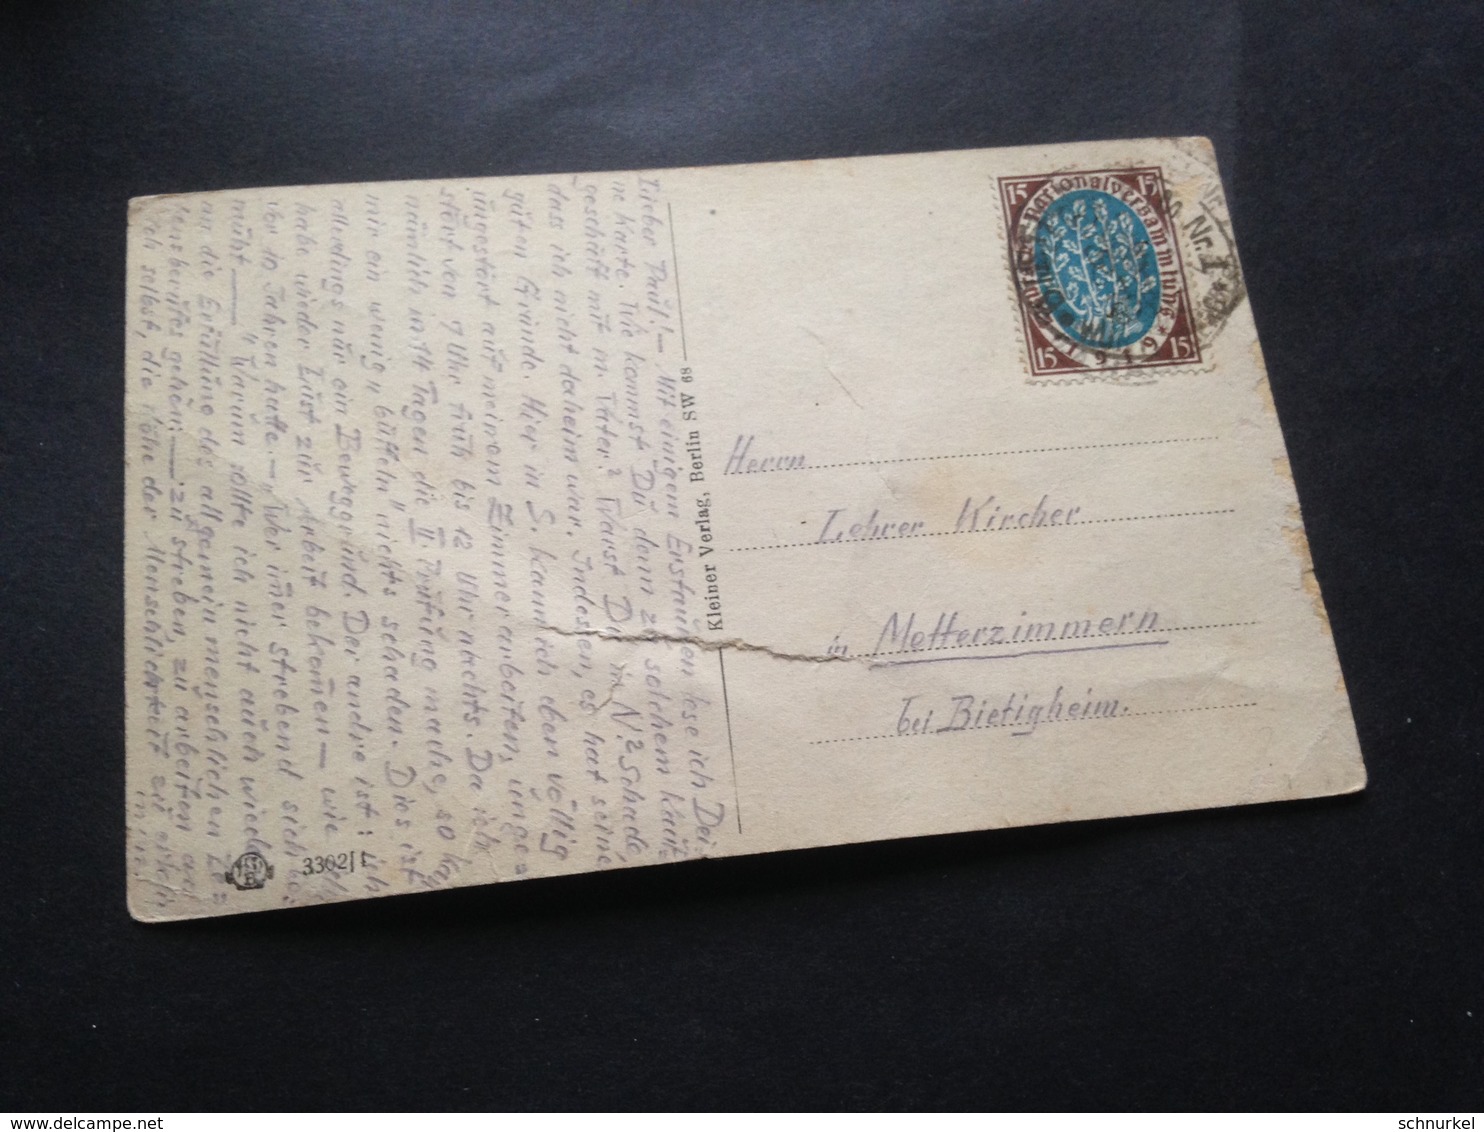 Lieber Paul! — Mit einigem Erstaunen lese ich Dei=
ne Karte. Wie kommst Du denn zu solchem Kauf=
geschäft mit m. Vater? Warst Du in N.? Schade,
dass ich nicht daheim war. Indessen, es hat seine
guten Gründe. Hier in S. kann ich eben völlig
ungestört auf meinem Zimmer arbeiten, unge=
stört von 7 Uhr früh bis 12 Uhr nachts. Da ich
nämlich in 14 Tagen die II. Prüfung mache, so kann
mir ein wenig „büffeln" nichts schaden. Dies ist
allerdings nur ein Beweggrund. Der andre ist: ich
habe wieder Lust zur Arbeit bekom̄en — wie ich
vor 10 Jahren hatte. — „Wer im̄er strebend sich be=
müht — " Warum sollte ich nicht auch wieder
an die Erfüllung des allgemein menschlichen Le=
bensberufes gehen: — zu streben, zu arbeiten an
sich selbst, die Höhe der Menschlichkeit zu
Kleiner Verlag, Berlin SW 68
3302/1
15 15
Deutsche Nationalversammlung
1919
15 15
Nr. 1
Herrn
Lehrer Kircher
in Metterzimmern
bei Bietigheim.
schnurkel
delcampe.net